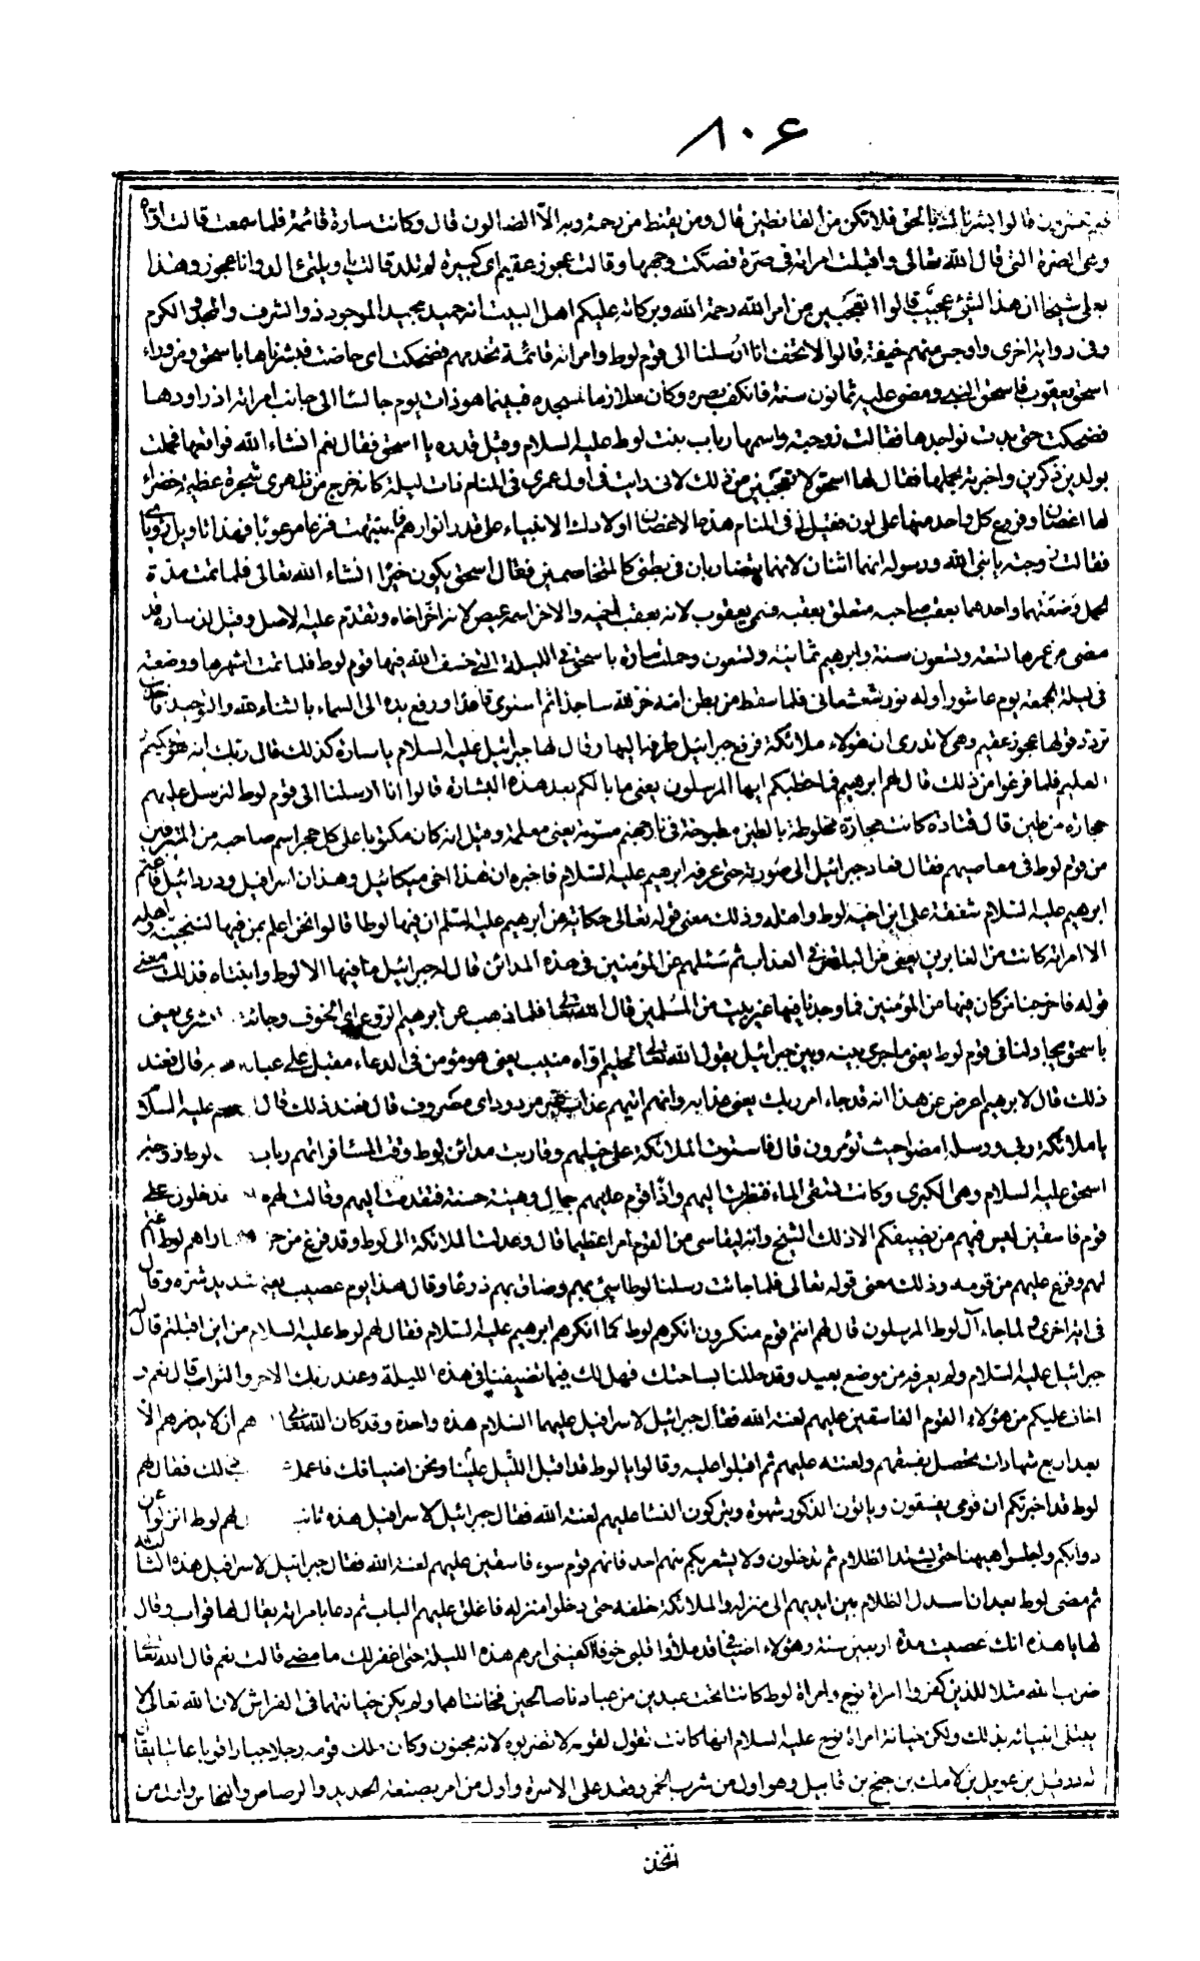 ٨٠۶
فبم تبشرون قالوا بشرناك بالحق فلا تكن من القانطين قال ومن يقنط من رحمة ربه الا الضالون قال وكانت سارة قائمة فلما سمعت قالت اوّه
وهى الصرة التى قال الله تعالى واقبلت امراته فى صرة فصكت وجهها وقالت عجوز عقيم اى كبيرة لم تلد قالت يا ويلتى ءالد وانا عجوز وهذا
بعلى شيخا ان هذا لشئ عجيب قالوا اتعجبين من امر الله رحمة الله وبركاته عليكم اهل البيت انه حميد مجيد الموجود ذو الشرف والمجد والكرم
وفى رواية اخرى واوجس منهم خيفة قالوا لا تخف انا ارسلنا الى قوم لوط وامراته قائمة تخدمهم فضحكت اى حاضت فبشرناها باسحق ومن وراء
اسحق يعقوب فاسحق النبى ومضى عليه ثمانون سنة فانكف بصره وكان ملازما لمسجده فبينما هو ذات يوم جالسا الى جانب امراته اذ راودها
فضحكت حتى بدت نواجدها فقالت زوجته واسمها رباب بنت لوط عليه السلام وقيل قدره يا اسحق فقال نعم انشاء الله فواقعها فحملت
بولدين ذكرين واخبرته بحملها فقال لها اسحق لا تعجبين من ذلك لانى رايت فى اول عمرى فى المنام ذات ليلة كانه خرج من ظهرى شجرة عظيمة خضراء
لها اغصان وفروع كل واحد منها على لون فقيل لى فى المنام هذه الاغصان اولادك الانبياء على قدر انوارهم فانتبهت فزعا مرعوبا فهذا تاويل رؤياى
فقالت زوجته يا نبى الله ورسوله انهما اثنان لانهما يتضاربان فى بطنى كالمتخاصمين فقال اسحق يكون خيرا انشاء الله تعالى فلما تمت مدة
الحمل وضعتهما واحدهما يعقب صاحبه متعلق بعقبه فسمى يعقوب لانه يعقب اخيه والاخر اسمه عيص لانه اخر اخاه وتقدم عليه لاصل وقيل ان سارة قد
مضى من عمرها تسعة وتسعون سنة وابرهيم ثمانية وتسعون وحملت سارة باسحق فى الليلة التى خسف الله فيها قوم لوط فلما تمت اشهرها ووضعته
فى ليلة الجمعة يوم عاشورا وله نور شعشعانى فلما سقط من بطن امه خر لله ساجدا ثم استوى قاعدا ورفع يده الى السماء بالثناء لله والتوحيد
تردد قولها عجوز عقيم وهى لا تدرى ان هؤلاء ملائكة فرفع جبرائيل طرفه اليها وقال لها جبرائيل عليه السلام يا سارة كذلك قال ربك انه هو الحكيم
العليم فلما فرغوا من ذلك قال لهم ابرهيم فما خطبكم ايها المرسلون يعنى ما بالكم بعد هذه البشارة قالوا انا ارسلنا الى قوم لوط لنرسل عليهم
حجارة من طين قال قتادة كانت حجارة مخلوطة بالطين مطبوخة فى نار جهنم مسومة يعنى معلمة وقيل انه كان مكتوبا على كل حجر اسم صاحبه من المترفين
من قوم لوط فى معاصيهم فقال فعاد جبرائيل الى صورته حتى عرفه ابرهيم عليه السلام فاخبره ان هذا اخى ميكائيل وهذان اسرافيل ودردائيل فاغتم
ابرهيم عليه السلام شفقة على ابن اخيه لوط واهله وذلك معنى قوله تعالى حكاية عن ابرهيم عليه السلام ان فيها لوطا قالوا نحن اعلم بمن فيها لننجينه واهله
الا امراته كانت من الغابرين يعنى من الباقين فى العذاب ثم سئلهم عن المؤمنين فى هذه المدائن قال له جبرائيل ما فيها الا لوط وابنتاه فذلك معنى
قوله فاخرجنا من كان فيها من المؤمنين فما وجدنا فيها غير بيت من المسلمين قال الله تعالى فلما ذهب عن ابرهيم الروع اى الخوف وجائته البشرى يعنى
باسحق يجادلنا فى قوم لوط يعنى ما جرى بينه وبين جبرائيل يقول الله تعالى لحليم اواه منيب يعنى هو مؤمن فى الدعاء مقبل على قال فعند
ذلك قال لابرهيم اعرض عن هذا انه قد جاء امر ربك يعنى عذابه وانهم اتيهم عذاب غير مردود اى مصروف قال فعند ذلك قال عليه السلام
يا ملائكة ربى ورسله امضوا حيث تؤمرون قال فاستوت الملائكة على خيلهم وقاربت مدائن لوط وقت المسا فراتهم رباب لوط زوجة
اسحق عليه السلام وهى الكبرى وكانت تستقى الماء فنظرت اليهم واذا قوم عليهم جمال وهيئة حسنة فتقدمت اليهم وقالت لهم تدخلون على
قوم فاسقين ليس فيهم من يضيفكم الا ذلك الشيخ وانه ليقاسى من القوم امرا عظيما قال وعدلت الملائكة الى لوط وقد فرغ من راهم لوط اغتم
لهم وفزع عليهم من قومه وذلك معنى قوله تعالى فلما جائت رسلنا لوطا سئ بهم وضاق بهم ذرعا وقال هذا يوم عصيب يعنى شديد شره وقال
فى اية اخرى ولما جاء آل لوط المرسلون قال لهم انتم قوم منكرون انكرهم لوط كما انكرهم ابرهيم عليه السلام فقال لهم لوط عليه السلام من اين اقبلتم قال له
جبرائيل عليه السلام ولم يعرفه من موضع بعيد وقد حللنا بساحتك فهل لك فيما تضيفنا فى هذه الليلة وعند ربك الاجر والثواب قال نعم و
اخاف عليكم من هؤلاء القوم الفاسقين عليهم لعنة الله فقال جبرائيل لاسرافيل عليهما السلام هذه واحدة وقد كان الله تعالى هم ان لا يدمرهم الا
بعد اربع شهادات تحصل بفسقهم ولعنته عليهم ثم اقبلوا عليه وقالوا يا لوط قد اقبل الليل علينا ونحن اضيافك فاعمل ذلك فقال لهم
لوط قد اخبرتكم ان قومى يفسقون وياتون الذكور شهوة ويتركون النسا عليهم لعنة الله فقال جبرائيل لاسرافيل هذه لهم لوط انزلوا عن
دوابكم واجلسوا هيهنا حتى يشتد الظلام ثم تدخلون ولا يشعر بكم منهم احد فانهم قوم سوء فاسقين عليهم لعنة الله فقال جبرائيل لاسرافيل هذه الثالثة
ثم مضى لوط بعد ان اسدل الظلام بين ايديهم الى منزله والملائكة خلفه حتى دخلوا منزله فاغلق عليهم الباب ثم دعا بامراته يقال لها قواب وقال
لها يا هذه انك عصيت مدة اربعين سنة وهؤلاء اضيافى قد ملأوا قلبى خوفا اكفينى امرهم هذه الليلة حتى اغفر لك ما مضى قالت نعم قال الله تعالى
ضرب الله مثلا للذين كفروا امراة نوح وامراة لوط كانتا تحت عبدين من عبادنا صالحين فخانتاهما ولم يكن خيانتهما فى الفراش لان الله تعالى لا
يبتلى انبيائه بذلك ولكن خيانة امراة نوح عليه السلام انها كانت تقول لقومه لا تضربوه لانه مجنون وكان ملك قومه رجلا جبارا قويا عاتيا يقال
له درقيل بن عويل بن لامك بن جنح بن قابيل وهو اول من شرب الخمر وقعد على الاسرة واول من امر بصنعة الحديد والرصاص والنحاس واول من
اتخذ